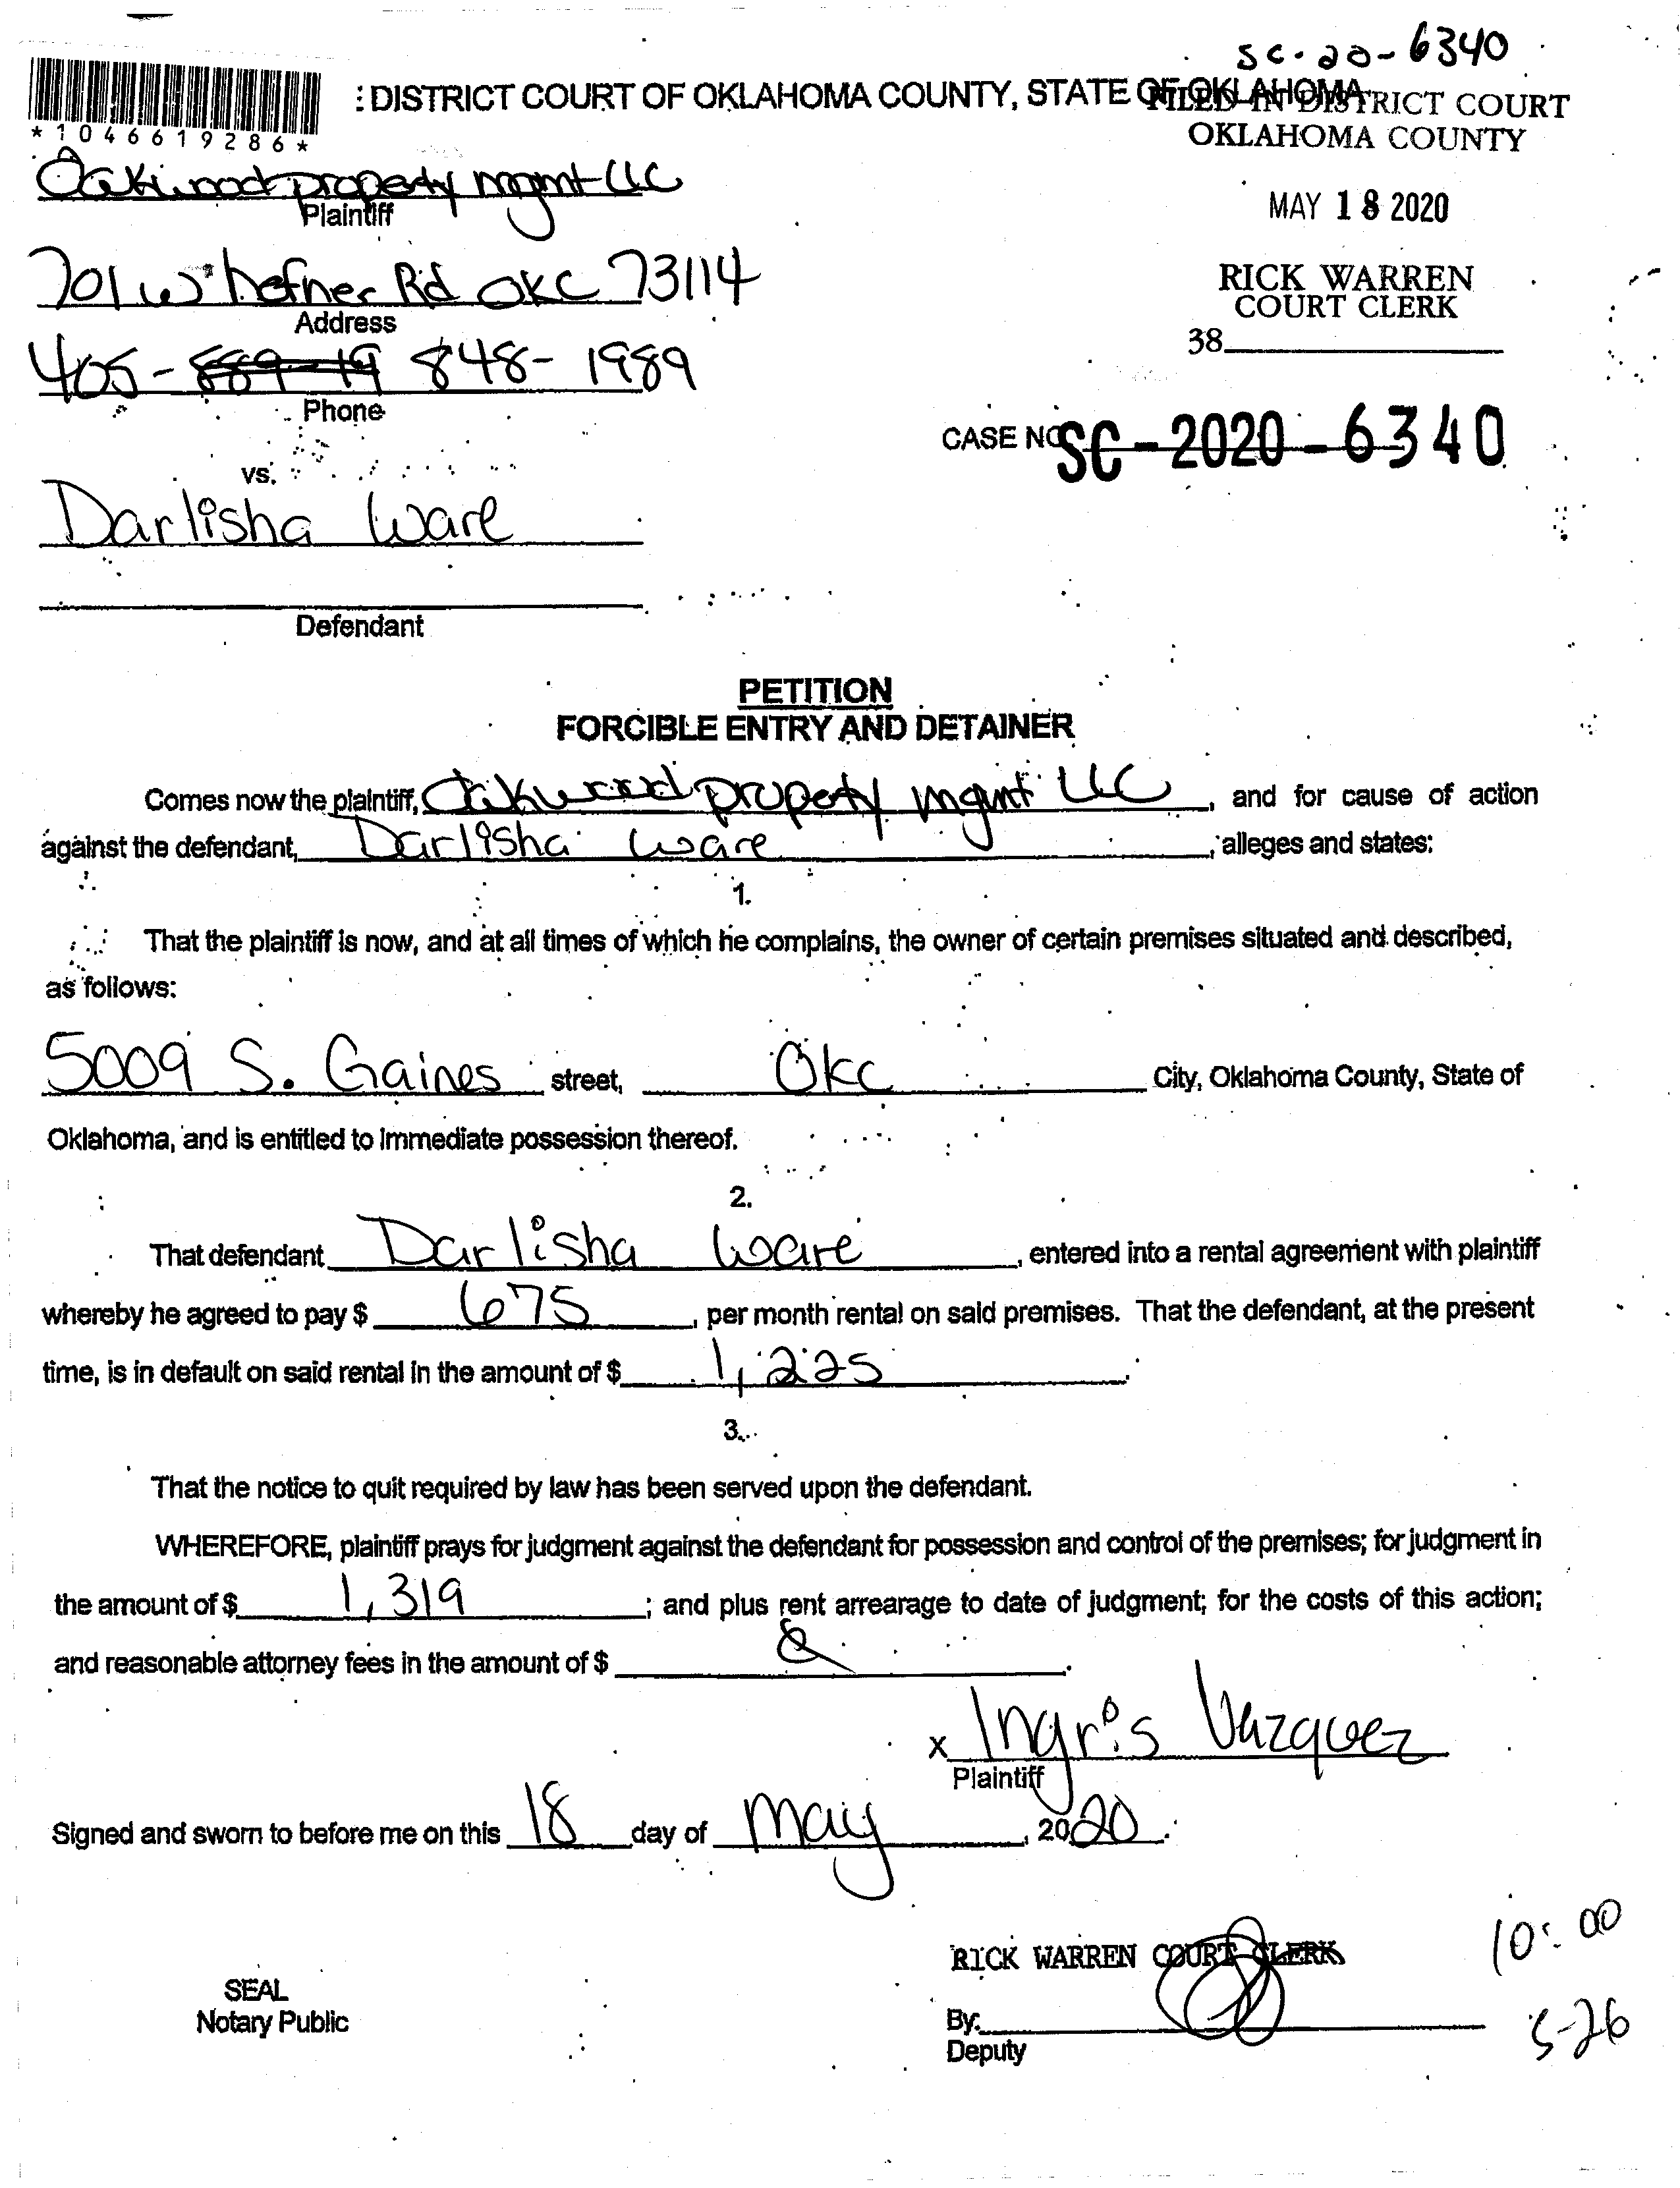 SC-20-6340
: DISTRICT COURT OF OKLAHOMA COUNTY, STATE OF OKLAHOMA
FILED IN DISTRICT COURT
OKLAHOMA COUNTY
*1046619286*
Oakwood property mgmt LLC
Plaintiff
MAY 18 2020
701 W hefner Rd OKC 73114
Address
RICK WARREN
COURT CLERK
38
405-889-19 848-1989
Phone
CASE NO SC-2020-6340
vs.
Darlisha Ware
Defendant
PETITION
FORCIBLE ENTRY AND DETAINER
Comes now the plaintiff, Oakwood property mgmt LLC, and for cause of action
against the defendant, Darlisha Ware, alleges and states:
1.
That the plaintiff is now, and at all times of which he complains, the owner of certain premises situated and described,
as follows:
5009 S. Gaines street, OKC City, Oklahoma County, State of
Oklahoma, and is entitled to immediate possession thereof.
2.
That defendant Darlisha Ware, entered into a rental agreement with plaintiff
whereby he agreed to pay $ 675, per month rental on said premises. That the defendant, at the present
time, is in default on said rental in the amount of $ 1,225.
3.
That the notice to quit required by law has been served upon the defendant.
WHEREFORE, plaintiff prays for judgment against the defendant for possession and control of the premises; for judgment in
the amount of $ 1,319; and plus rent arrearage to date of judgment; for the costs of this action;
and reasonable attorney fees in the amount of $
x Ingris Vazquez
Plaintiff
Signed and sworn to before me on this 18 day of May, 2020.
RICK WARREN COURT CLERK
10:00
SEAL
Notary Public
By:
Deputy
5-26